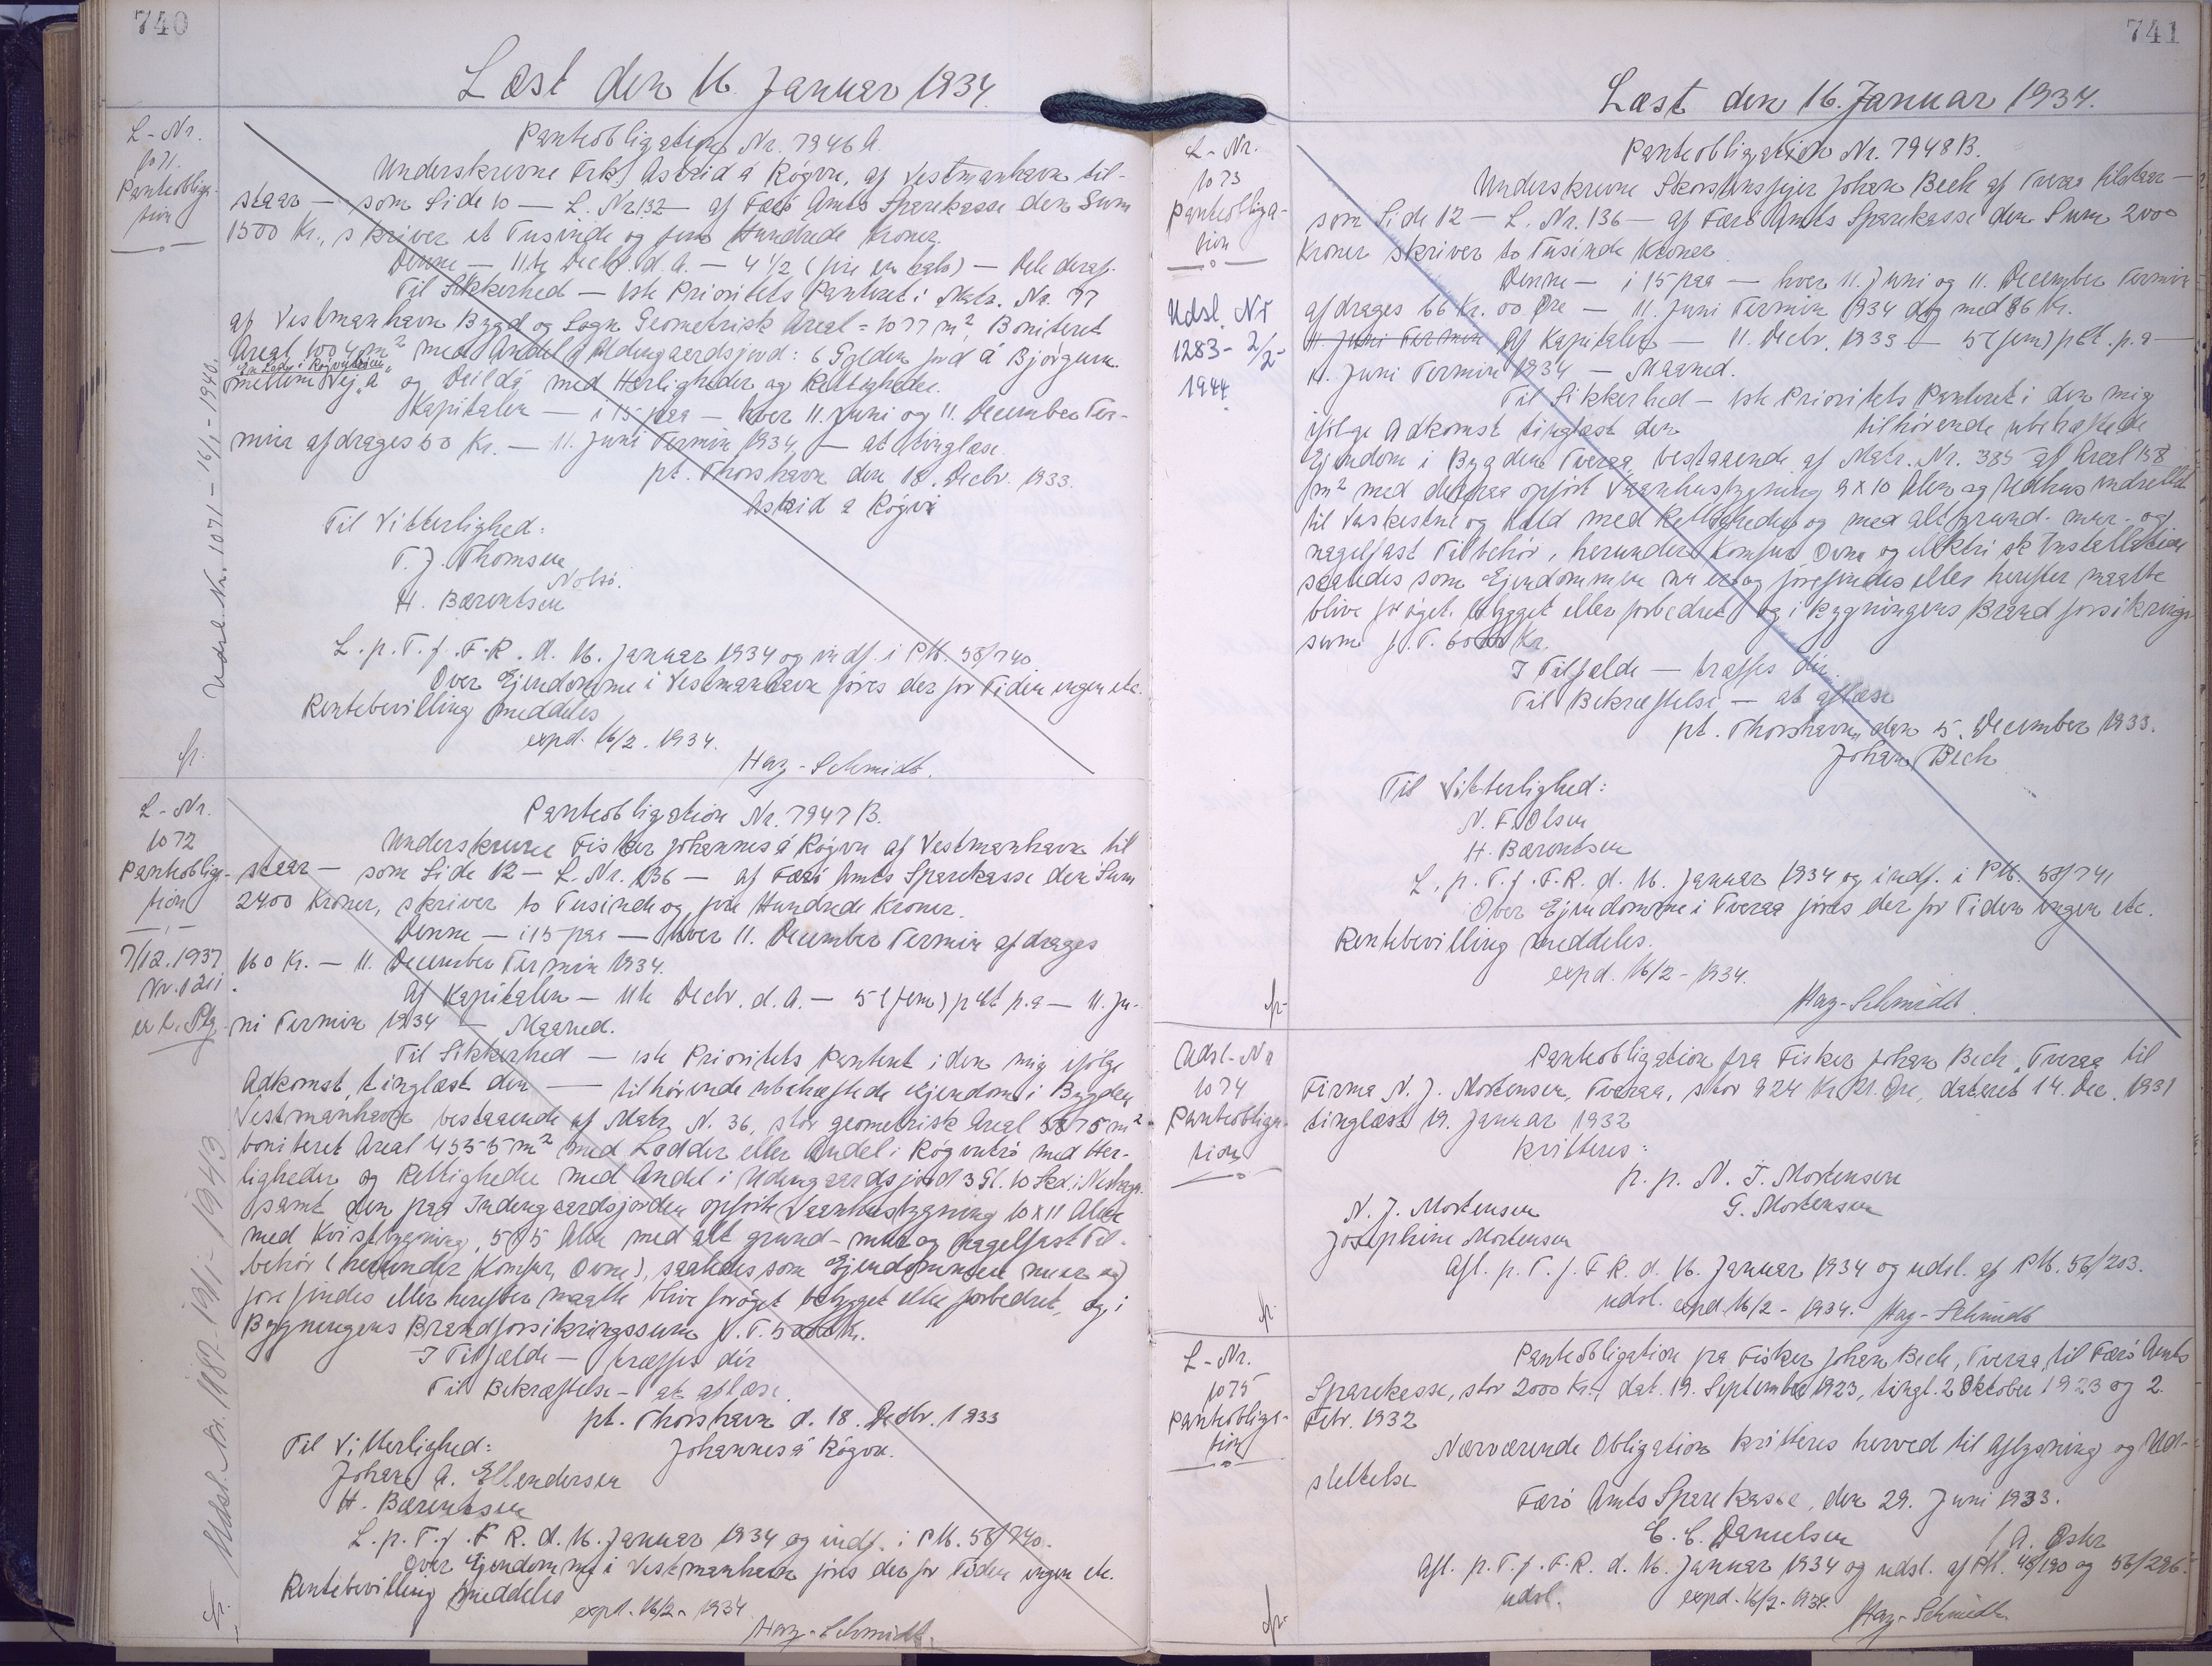 740
Læst den 16 Januar 1934.
L-Nr.
1071.
Panteobliga-
tion
Udsl. Nr. 1071 - 16/1 - 1940.
Panteobligation Nr. 7946 A.
Underskrevne Frk. Astrid á Rógvu, af Vestmanhavn til-
staar — som Side 10 — L. Nr. 132 — af Færö Amts Sparekasse den Sum
1500 Kr., skriver et Tusinde og fem Hundrede Kroner.
Denne — 11te Decbr. d. A. — 4 1/2 (fire en halv) — Dele deraf.
Til Sikkerhed — 1ste Prioritets Panteret i Matr. Nr. 77
af Vestmanhavn Bygd og Sogn Geometrisk Areal = 1077 m² Boniteret
Areal 1004 m² med Andel i Udengaardsjord: 6 Gylden jord á Bjørgum
mellem Vej á og Deildá med Herligheder og Rettigheder.
Kapitalen — i 15 paa — hver 11. Juni og 11. December Ter-
min afdrages 50 Kr. — 11. Juni Termin 1934, — at tinglæse.
pt. Thorshavn den 18. Decbr. 1933.
Astrid á Rógvu
Til Vitterlighed:
T. J. Thomsen
Nolsö.
H. Bærentsen
L. p. T. f. F. R. d. 16. Januar 1934 og indf. i P.M. 58/740.
Over Ejendomme i Vestmanhavn föres der for Tiden ingen etc.
Rentebevilling meddeles
expd. 16/2. 1934.
Hay-Schmidt.
L-Nr.
1072
Panteobliga-
tion
7/12.1937
Udsl. Nr. 1187 - 19/1 - 1943
Panteobligation Nr. 7947 B.
Underskrevne Fisker Johannes á Rógvu af Vestmanhavn til
staar — som Side 12 — L. Nr. 136 — af Færö Amts Sparekasse den Sum
2400 Kroner, skriver to Tusinde og fire Hundrede Kroner.
Denne — i 15 paa — hver 11. December Termin afdrages
160 Kr. — 11. December Termin 1934.
Af Kapitalen — 11te Decbr. d. A. — 5 (fem) pCt p.a — 11. Ju-
ni Termin 1934 — Maaned.
Til Sikkerhed — 1ste Prioritets Panteret i den mig ifölge
Adkomst, tinglæst den — tilhörende ubehæftede Ejendom i Bygden
Vestmanhavn bestaaende af Matr. N. 36, stor geometrisk Areal 5875 m²
boniteret Areal 4555 m² med Lodder eller Andel i Rógvutrö med Her-
ligheder og Rettigheder med Andel i Udengaardsjord 3 Gl. 10 Skd. i
samt den paa Indengaardsjorden opförte Vaanhusbygning 10 x 11 Alen
med Kvistbygning, 5 x 5 Alen med alt grund- mur og nagelfast Til-
behör (herunder Komfur, Ovne), saaledes som Ejendommen nu er og
forefindes eller herefter maatte blive foröget bebygget eller forbedret, og i
Bygningens Brandforsikringssum p. T. 5000 Kr.
I Tilfælde — træffes dér
Til Bekræftelse — at aflæse.
pt. Thorshavn d. 18. Decbr. 1933
Johannes á Rógvu.
Til Vitterlighed:
Johan A. Ellendersen
H. Bærentsen
L. p. T. f. F. R. d. 16. Januar 1934 og indf. i P.M. 58/740.
Over Ejendomme i Vestmanhavn föres der for Tiden ingen etc.
Rentebevilling meddeles
expd. 16/2 - 1934
Hay-Schmidt.
741
Læst den 16. Januar 1934.
L-Nr.
1073
Panteobliga-
tion
Udsl. Nr
1283 - 2/2 -
1944.
Panteobligation Nr. 7948 B.
Underskrevne Skorstensfejer Johan Bech af Tveraa tilstaar —
som Side 12 — L. Nr. 136 — af Færö Amts Sparekasse den Sum 2000
Kroner skriver to Tusinde Kroner
Denne — i 15 paa — hver 11. Juni og 11. December Termin
afdrages 66 Kr. 00 Öre — 11. Juni Termin 1934 dog med 86 Kr.
11. Juni Termin Af Kapitalen — 11. Decbr. 1933 — 5 (fem) pCt. p.a —
11. Juni Termin 1934 — Maaned.
Til Sikkerhed — 1ste Prioritets Panteret i den mig
ifölge Adkomst tinglæst den tilhörende ubehæftede
Ejendom i Bygden Tveraa bestaaende af Matr. Nr. 385 af Areal 158
m² med derpaa opfört Vaanhusbygning 9 x 10 Alen og Udhus indrettet
til Vaskested og Hald med Rettigheder og med alt grund- mur- og
nagelfast Tilbehör, herunder Komfur Ovne og elektrisk Installation
saaledes som Ejendommen nu er og forefindes eller herefter maatte
blive foröget bebygget eller forbedret og i Bygningens Brandforsikrings
sum p. T. 6000 Kr.
I Tilfælde — træffes dér.
Til Bekræftelse — at aflæse
pt. Thorshavn, den 5. December 1933.
Johan Bech
Til Vitterlighed:
N. F. Olsen
H. Bærentsen
L. p. T. f. F. R. d. 16. Januar 1934 og indf. i P.M. 58/741
Over Ejendomme i Tveraa föres der for Tiden ingen etc.
Rentebevilling meddeles.
expd. 16/2 - 1934.
Hay-Schmidt.
Udsl-Nr
1074
Panteobliga-
tion
Panteobligation fra Fisker Johan Bech, Tveraa til
Firma N. J. Mortensen, Tveraa, stor 924 Kr. 21. Öre, dateret 14. Dec. 1931
tinglæst 19. Januar 1932
kvitteres:
p. p. N. J. Mortensen
N. J. Mortensen
G. Mortensen
Josephine Mortensen
Afl. p. T. f. F. R. d. 16. Januar 1934 og udsl. af P.M. 56/203.
udsl. expd. 16/2 - 1934. Hay-Schmidt
L-Nr.
1075
Panteobliga-
tion
Panteobligation fra Fisker Johan Bech, Tveraa, til Færö Amts
Sparekasse, stor 2000 Kr., dat. 19. September 1923, tingl. 2 Oktober 1923 og 2.
Febr. 1932
Nærværende Obligation kvitteres herved til Aflysning og Ud-
slettelse
Færö Amts Sparekasse, den 29. Juni 1933.
C. C. Danielsen
Afl. p. T. f. F. R. d. 16. Januar 1934 og udsl. af P.M. 48/190 og 56/296.
udsl. expd. 16/2 - 1934. Hay-Schmidt